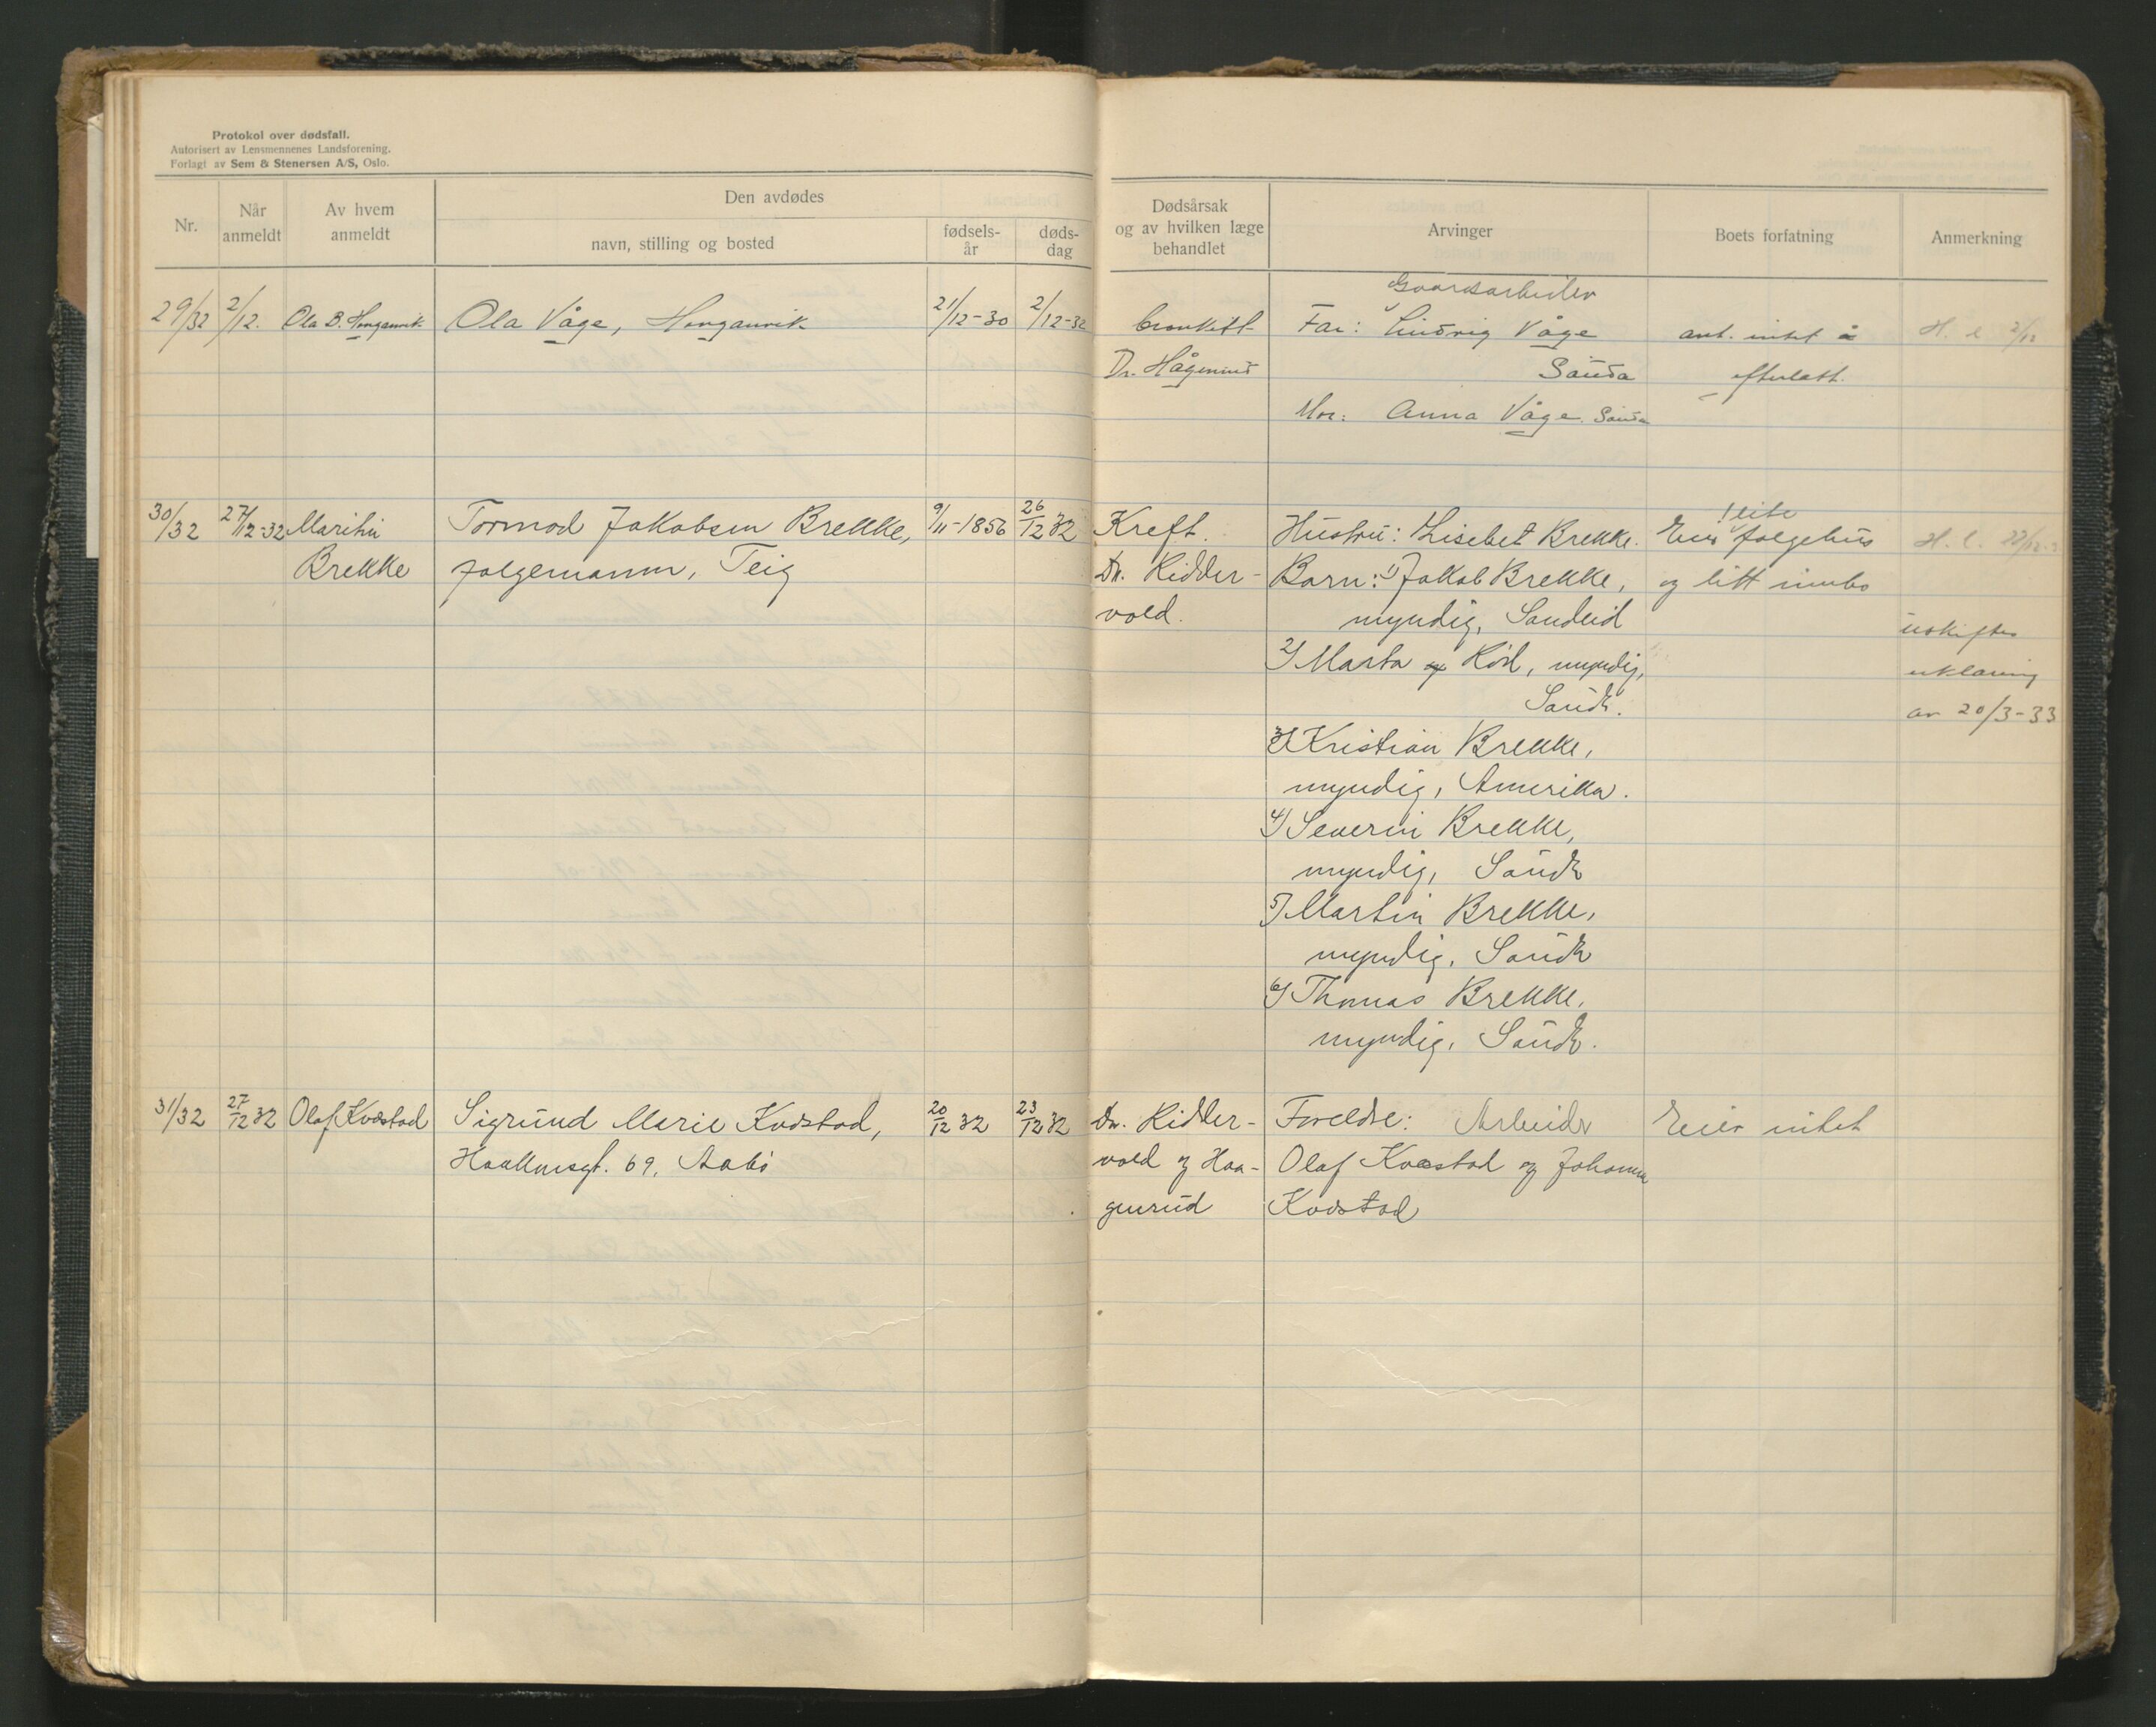 Protokol over dødsfall.
Autorisert av Lensmennenes Landsforening.
Forlagt av Sem & Stenersen A/S, Oslo.
Nr.
Når anmeldt
Av hvem anmeldt
Den avdødes
navn, stilling og bosted
fødsels-år
døds-dag
Dødsårsak og av hvilken læge behandlet
Arvinger
Boets forfatning
Anmerkning
29/32 2/12. Ola B. Honganvik Ola Våge, Honganvik 21/12-30 2/12-32
Far: Gaardsarbeider Våge ant. intet å
Sauda efterlatt.
Mor: Anna Våge. Sauda
30/32 27/12-32 Martin Tormod Jakobsen Brekke, 9/11-1856 26/12 32 Kreft. Hustru: Lisebet Brekke. Eier 1 lite folgehus H. l.
Brekke folgemann, Teig Dr. Ridder- Barn: 1) Jakob Brekke, og litt innbo
vold. myndig, Sandeid
2) Marta Rød, myndig, uskifte
Sauda. erklæring
av 20/3-33
3) Kristian Brekke,
myndig, Amerika.
4) Severin Brekke,
myndig, Sauda
5) Martin Brekke,
myndig, Sauda
6) Thomas Brekke,
myndig, Sauda.
31/32 27/12 32 Olaf Kvæstad Sigrund Marie Kvæstad, 20/12 32 23/12 32 Dr. Ridder- Foreldre: Arbeider Eier intet
Haakonsgt. 69, Aabø vold og Haa- Olaf Kvæstad og Johanna
genrud Kvæstad